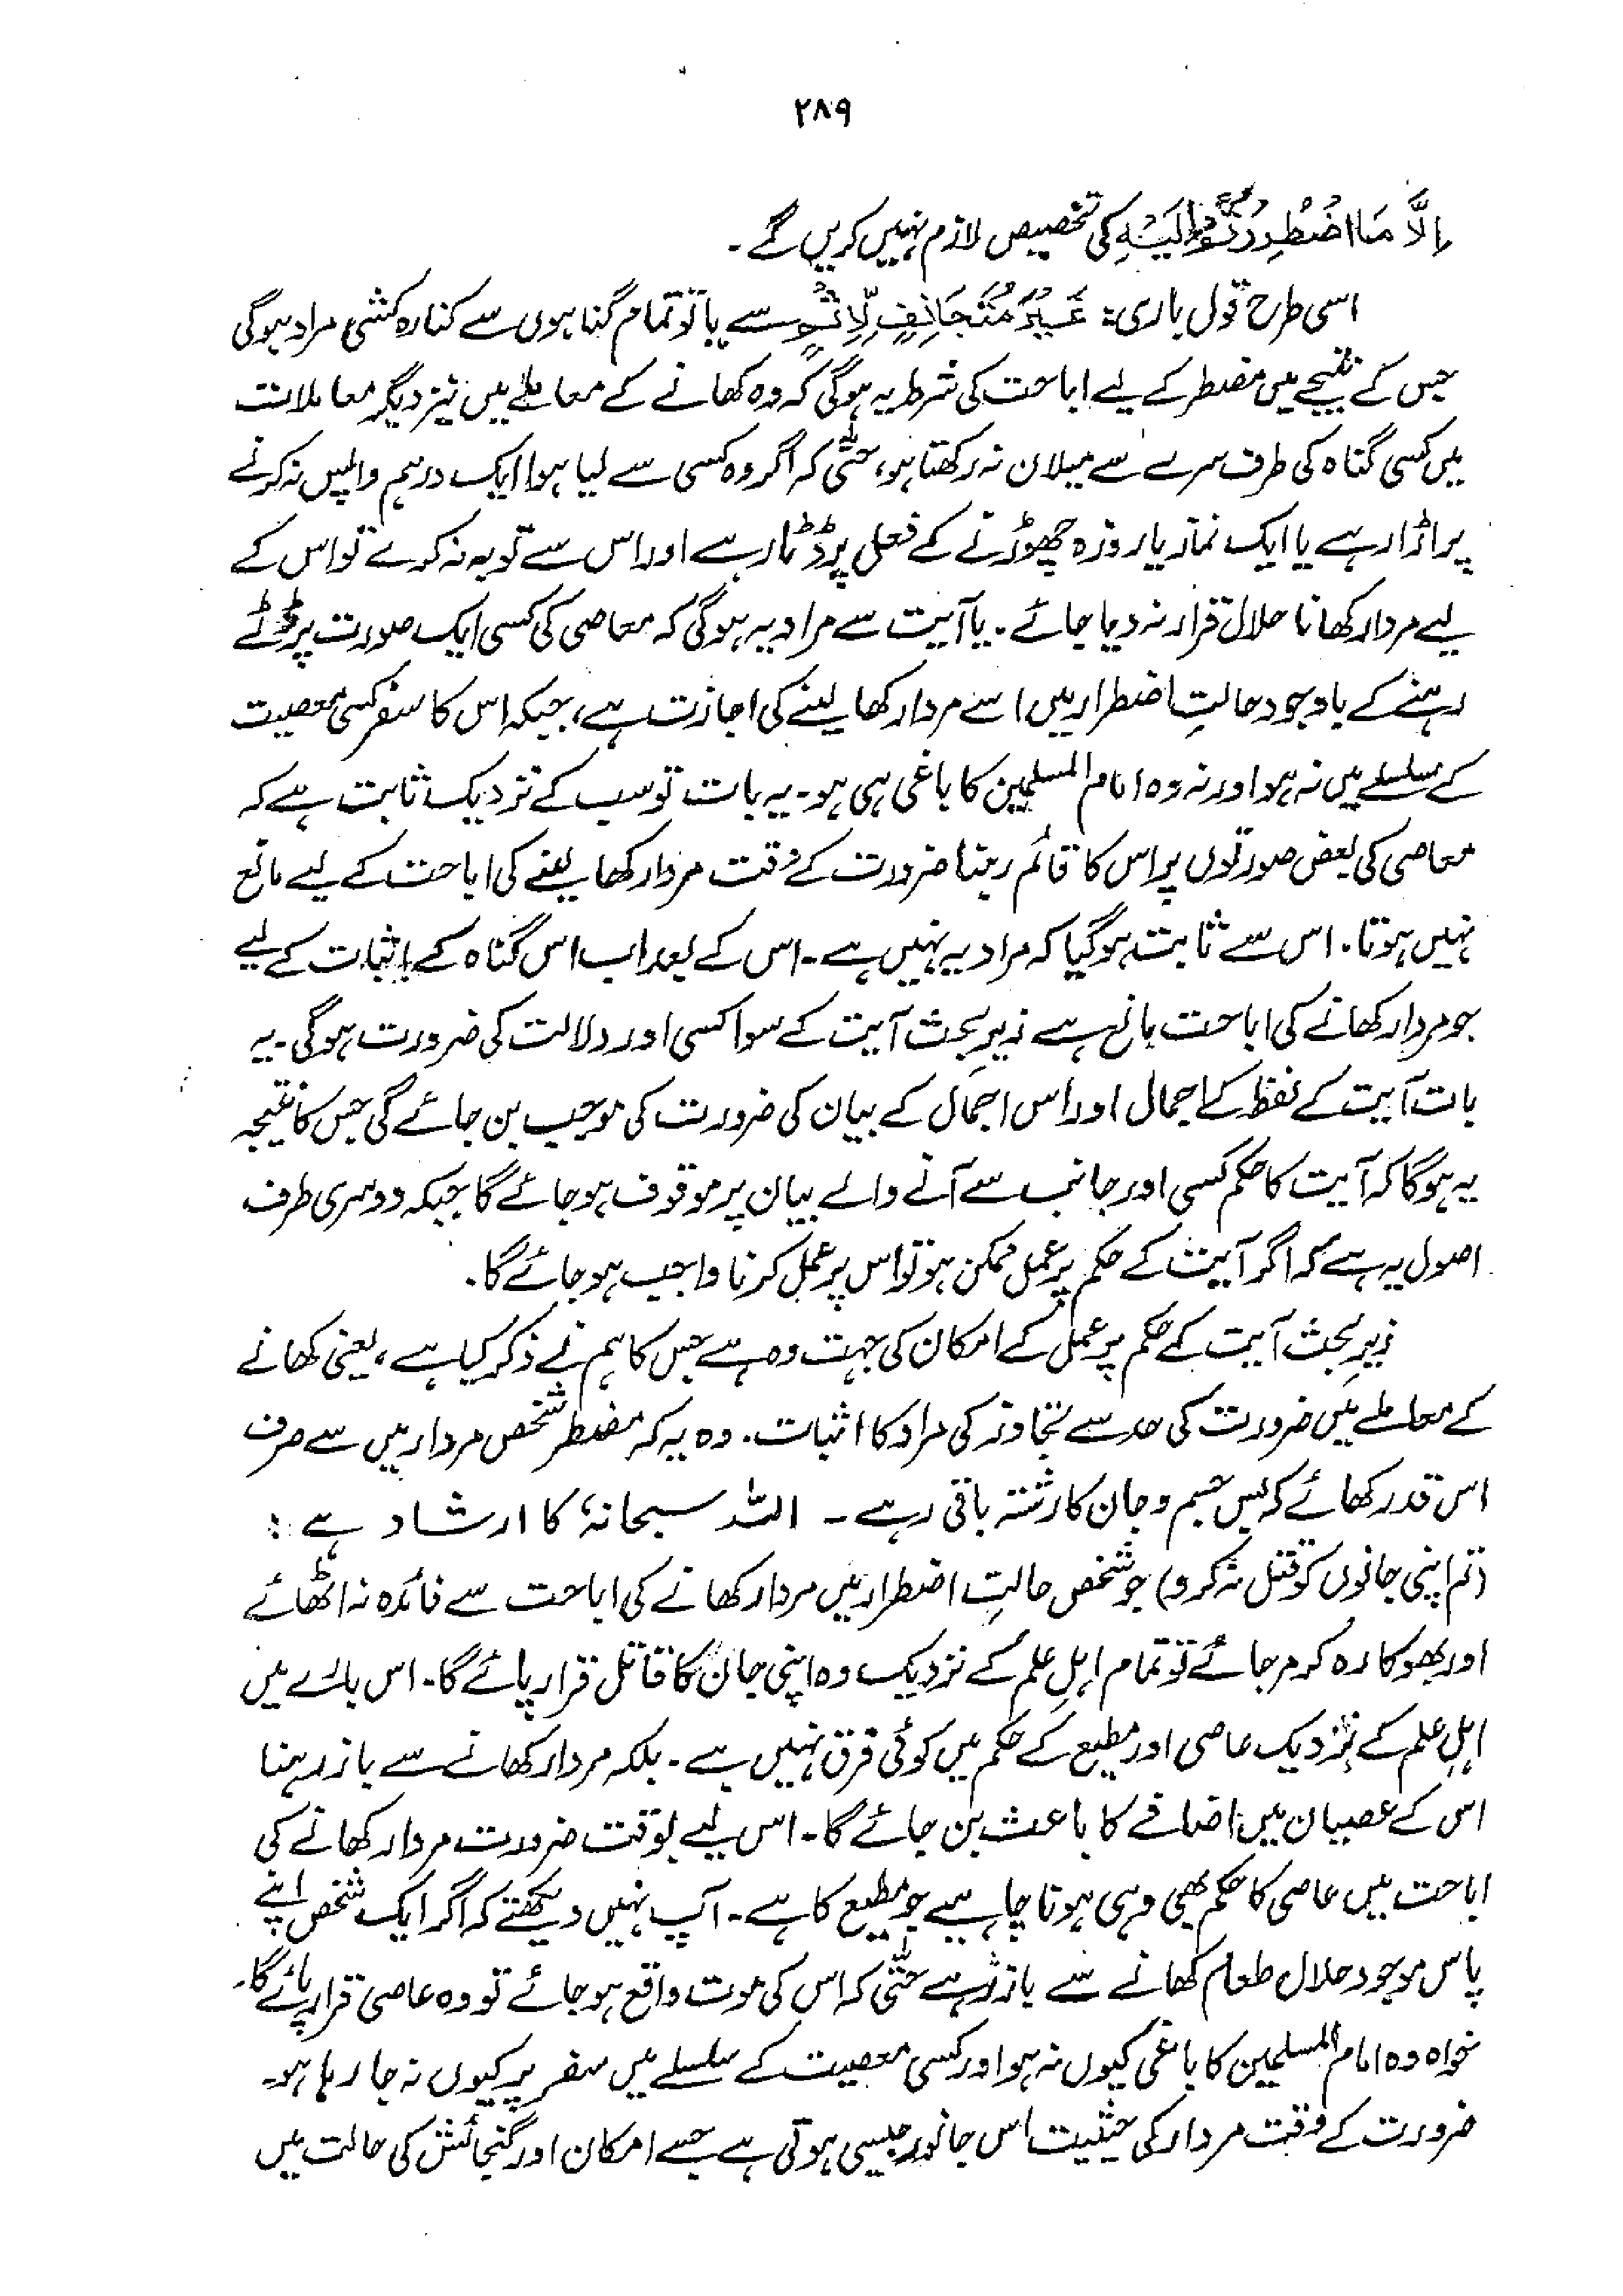 ۲۸۹
اِلَّا مَا اضْطُرِرْتُمْ اِلَیْہِ کی تخصیص لازم نہیں کریں گے۔
اسی طرح قول باری: غَیْرَ مُتَجَانِفٍ لِّاِثْمٍ سے یا تو تمام گناہوں سے کنارہ کشی مراد ہوگی
جس کے نتیجے میں مضطر کے لیے اباحت کی شرط یہ ہوگی کہ وہ کھانے کے معاملے میں نیز دیگر معاملات
میں کسی گناہ کی طرف سرے سے میلان نہ رکھتا ہو، حتّٰی کہ اگر وہ کسی سے لیا ہوا ایک درہم واپس نہ کرنے
پر اڑا رہے یا ایک نماز یا روزہ چھوڑنے کے فعل پر ڈٹا رہے اور اس سے توبہ نہ کرے تو اس کے
لیے مردار کھانا حلال قرار نہ دیا جائے۔ یا آیت سے مراد یہ ہوگی کہ معاصی کی کسی ایک صورت پر ڈٹے
رہنے کے باوجود حالتِ اضطرار میں اسے مردار کھا لینے کی اجازت ہے، جبکہ اس کا سفر کسی معصیت
کے سلسلے میں نہ ہو اور نہ وہ امام المسلمین کا باغی ہی ہو۔ یہ بات تو سب کے نزدیک ثابت ہے کہ
معاصی کی بعض صورتوں پر اس کا قائم رہنا ضرورت کے وقت مردار کھا لینے کی اباحت کے لیے مانع
نہیں ہوتا۔ اس سے ثابت ہوگیا کہ مراد یہ نہیں ہے۔ اس کے بعد اب اس گناہ کے اثبات کے لیے
جو مردار کھانے کی اباحت مانع ہے زیرِ بحث آیت کے سوا کسی اور دلالت کی ضرورت ہوگی۔ یہ
بات آیت کے لفظ کے اجمال اور اس اجمال کے بیان کی ضرورت کی موجب بن جائے گی جس کا نتیجہ
یہ ہوگا کہ آیت کا حکم کسی اور جانب سے آنے والے بیان پر موقوف ہو جائے گا جبکہ دوسری طرف
اصول یہ ہے کہ اگر آیت کے حکم پر عمل ممکن ہو تو اس پر عمل کرنا واجب ہو جائے گا۔
زیرِ بحث آیت کے حکم پر عمل کے امکان کی جہت وہ ہے جس کا ہم نے ذکر کیا ہے، یعنی کھانے
کے معاملے میں ضرورت کی حد سے تجاوز کی مراد کا اثبات۔ وہ یہ کہ مضطر شخص مردار میں سے صرف
اس قدر کھائے کہ بس جسم و جان کا رشتہ باقی رہے۔ اللہ سبحانہٗ کا ارشاد ہے:
(تم اپنی جانوں کو قتل نہ کرو) جو شخص حالتِ اضطرار میں مردار کھانے کی اباحت سے فائدہ نہ اٹھائے
اور بھوکا رہ کر مر جائے تو تمام اہلِ علم کے نزدیک وہ اپنی جان کا قاتل قرار پائے گا۔ اس بارے میں
اہلِ علم کے نزدیک عاصی اور مطیع کے حکم میں کوئی فرق نہیں ہے۔ بلکہ مردار کھانے سے باز رہنا
اس کے عصیان میں اضافے کا باعث بن جائے گا۔ اس لیے بوقت ضرورت مردار کھانے کی
اباحت میں عاصی کا حکم بھی وہی ہونا چاہیے جو مطیع کا ہے۔ آپ نہیں دیکھتے کہ اگر ایک شخص اپنے
پاس موجود حلال طعام کھانے سے باز رہے حتّٰی کہ اس کی موت واقع ہو جائے تو وہ عاصی قرار پائے گا۔
خواہ وہ امام المسلمین کا باغی کیوں نہ ہو اور کسی معصیت کے سلسلے میں سفر پر کیوں نہ جا رہا ہو۔
ضرورت کے وقت مردار کی حیثیت اس جانور جیسی ہوتی ہے جسے امکان اور گنجائش کی حالت میں